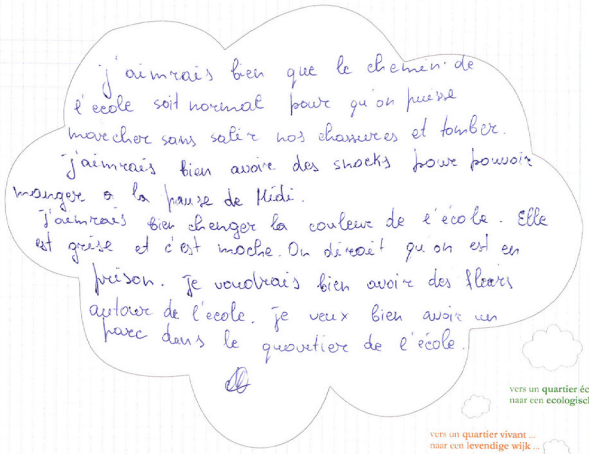 j'aimrais bien que le chemen de
l'ecole soit normal pour qu'on puesse
marcher sans salir nos chassures et tomber.
j'aimrais bien avoir des snacks pour pouvoir
manger a la pause de Midi.
J'aimrais bien changer la couleur de l'école. Elle
est grise et c'est moche. On dirait qu'on est en
prison. je voudrais bien avoir des fleurs
autour de l'ecole. je veux bien avoir un
parc dans le quartier de l'école.
vers un quartier éc
naar een ecologisc
vers un quartier vivant ...
naar een levendige wijk ...